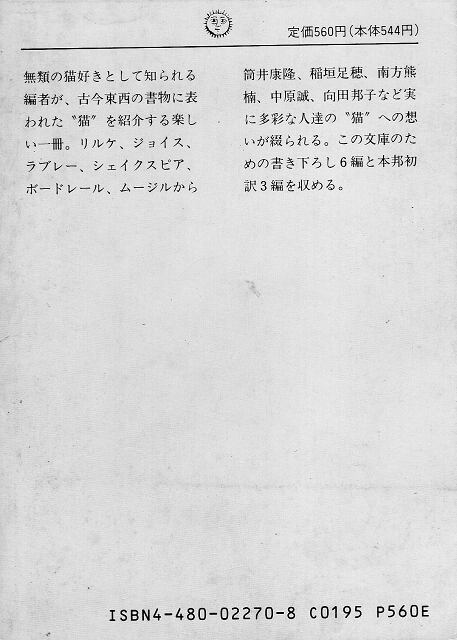 定価560円(本体544円)
無類の猫好きとして知られる
編者が、古今東西の書物に表
われた〝猫〟を紹介する楽し
い一冊。リルケ、ジョイス、
ラブレー、シェイクスピア、
ボードレール、ムージルから
筒井康隆、稲垣足穂、南方熊
楠、中原誠、向田邦子など実
に多彩な人達の〝猫〟への想
いが綴られる。この文庫のた
めの書き下ろし6編と本邦初
訳3編を収める。
ISBN4-480-02270-8 C0195 P560E